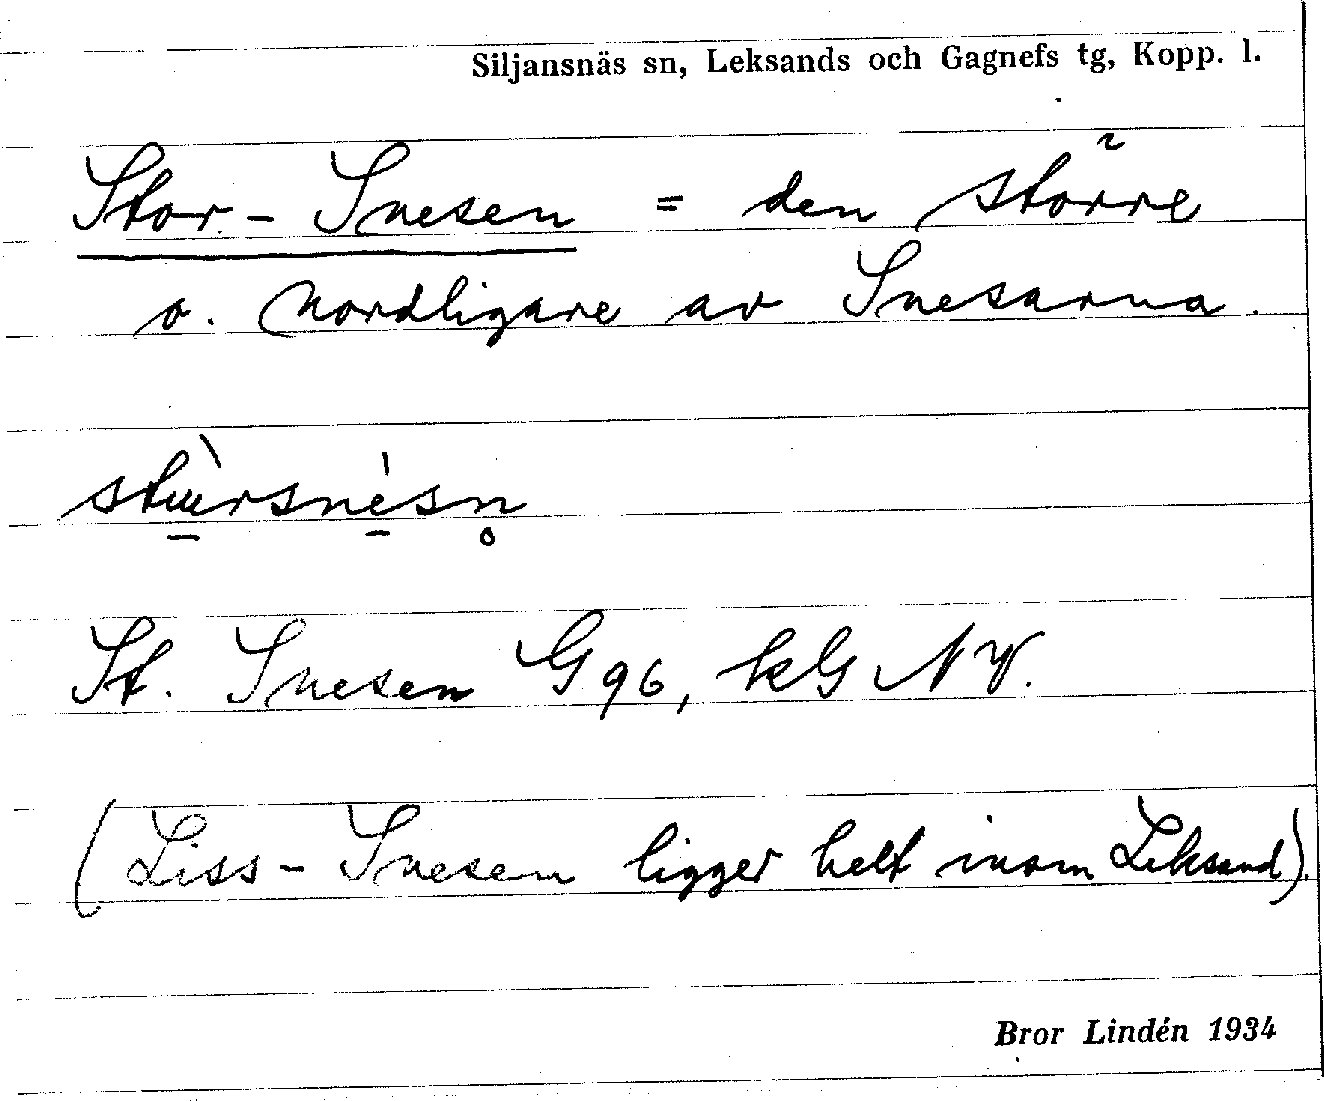 Siljansnäs sn, Leksands och Gagnefs tg, Kopp. l.
Stor-Snesen = den större
o. nordligare av Snesarna.
St. Snesen G96, kG NV.
(Liss-Snesen ligger helt inom Leksand).
Bror Lindén 1934